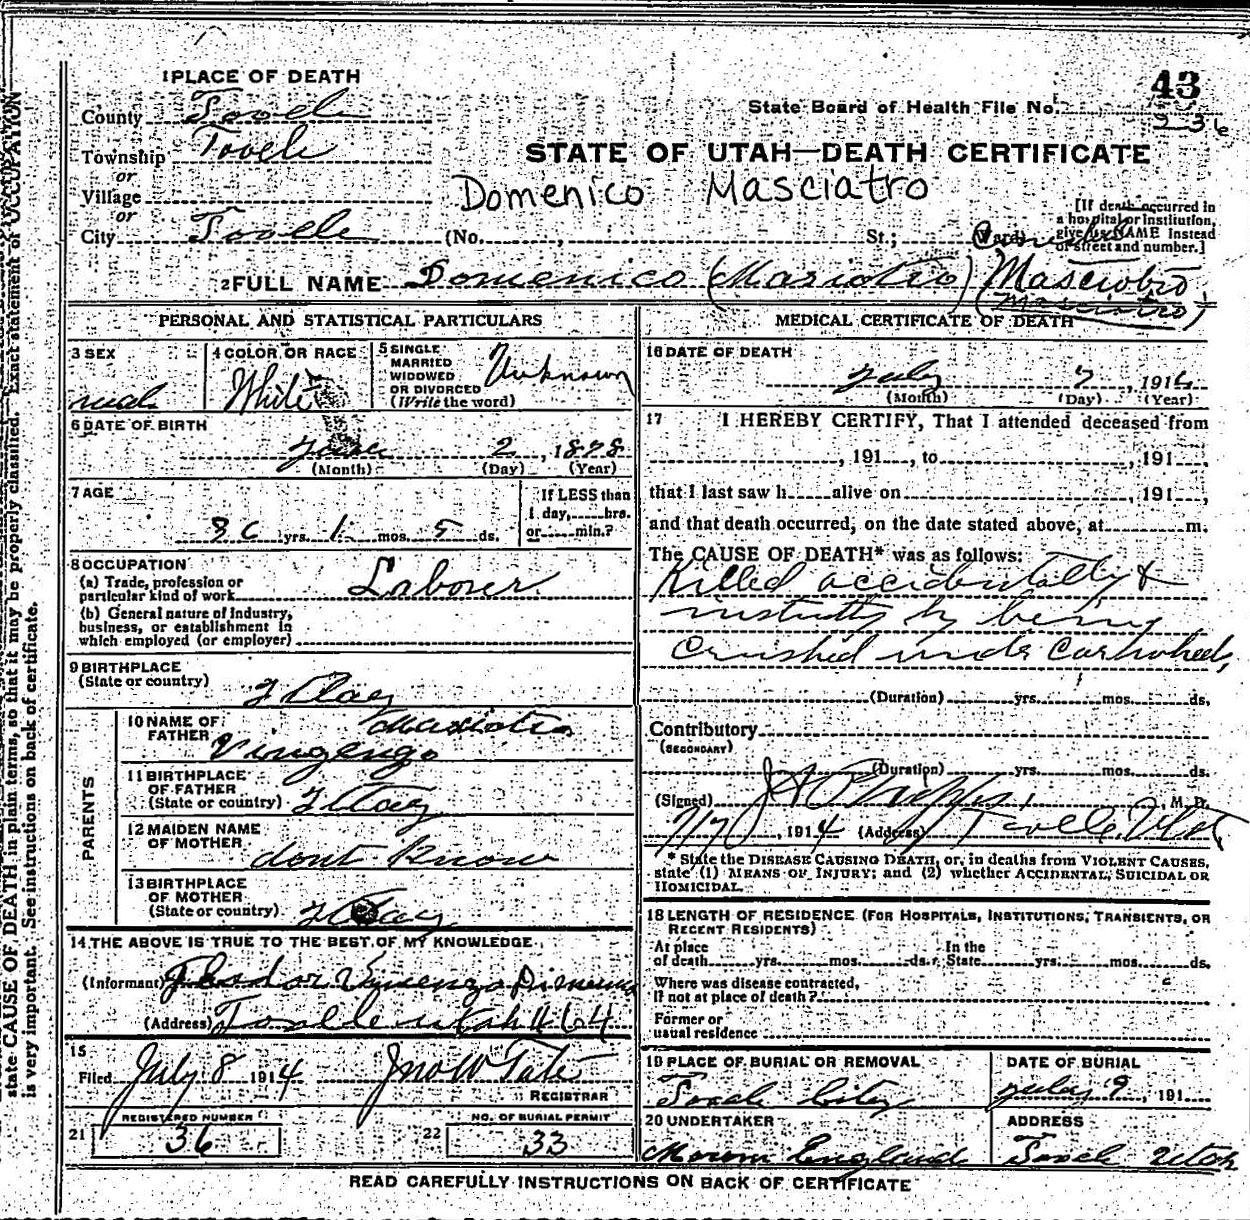 1 PLACE OF DEATH
43
County Tooele
State Board of Health File No. 236
Township Tooele
or
STATE OF UTAH—DEATH CERTIFICATE
Village
or
Domenico Masciatro
City Tooele (No. , St.; Ward)
[If death occurred in a hospital or institution, give its NAME instead of street and number.]
2 FULL NAME Domenico (Mariotro) Masciobro
(Masciatro)
PERSONAL AND STATISTICAL PARTICULARS
3 SEX
male
4 COLOR OR RACE
White
5 SINGLE
MARRIED
WIDOWED
OR DIVORCED
(Write the word)
Unknown
6 DATE OF BIRTH
2, 1878
(Month) (Day) (Year)
7 AGE
36 yrs. 1 mos. 5 ds.
If LESS than
1 day, hrs.
or min.?
8 OCCUPATION
(a) Trade, profession or
particular kind of work Laborer
(b) General nature of industry,
business, or establishment in
which employed (or employer)
9 BIRTHPLACE
(State or country)
Italy
PARENTS
10 NAME OF
FATHER
Vingengo
11 BIRTHPLACE
OF FATHER
(State or country) Italy
12 MAIDEN NAME
OF MOTHER
dont know
13 BIRTHPLACE
OF MOTHER
(State or country) Italy
14 THE ABOVE IS TRUE TO THE BEST OF MY KNOWLEDGE
(Informant)
(Address) Tooele Utah 464
15
Filed July 8 1914 Jno W Tate
REGISTRAR
REGISTERED NUMBER
21 36
NO. OF BURIAL PERMIT
22 33
MEDICAL CERTIFICATE OF DEATH
16 DATE OF DEATH
July 7, 1914
(Month) (Day) (Year)
17 I HEREBY CERTIFY, That I attended deceased from
, 191 , to , 191 ,
that I last saw h alive on , 191 ,
and that death occurred, on the date stated above, at m.
The CAUSE OF DEATH* was as follows:
Killed accidentally &
instantly by being
crushed under car wheels,
(Duration) yrs. mos. ds.
Contributory
(SECONDARY)
(Duration) yrs. mos. ds.
(Signed) J A Phipps, M. D.
7/7, 1914 (Address) Tooele Utah
* State the DISEASE CAUSING DEATH, or, in deaths from VIOLENT CAUSES,
state (1) MEANS OF INJURY; and (2) whether ACCIDENTAL, SUICIDAL OR
HOMICIDAL.
18 LENGTH OF RESIDENCE (FOR HOSPITALS, INSTITUTIONS, TRANSIENTS, OR
RECENT RESIDENTS)
At place
of death yrs. mos. ds.
In the
State yrs. mos. ds.
Where was disease contracted,
If not at place of death?
Former or
usual residence
19 PLACE OF BURIAL OR REMOVAL
Tooele City
DATE OF BURIAL
July 9, 191
20 UNDERTAKER
England
ADDRESS
Tooele Utah
READ CAREFULLY INSTRUCTIONS ON BACK OF CERTIFICATE
state CAUSE OF DEATH in plain terms, so that it may be properly classified. Exact statement of OCCUPATION
is very important. See instructions on back of certificate.